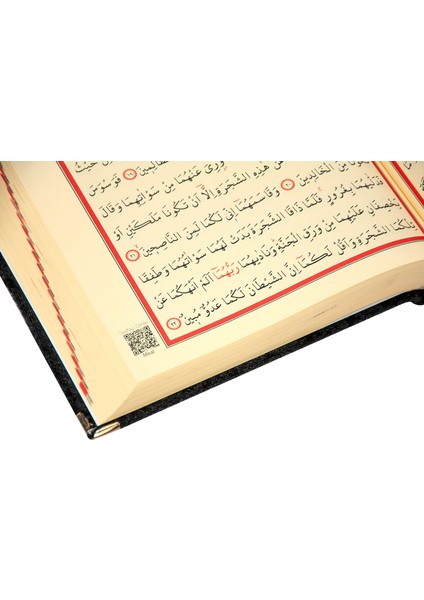 حَيْثُ
الظَّالِمِينَ ﴿١٩﴾ فَوَسْوَسَ
وُرِيَ عَنْهُمَا مِنْ سَوْاٰتِهِمَا وَقَالَ
عَنْ هٰذِهِ الشَّجَرَةِ اِلَّٓا اَنْ تَكُونَا مَلَكَيْنِ اَوْ
تَكُونَا مِنَ الْخَالِدِينَ ﴿٢٠﴾ وَقَاسَمَهُمَٓا اِنِّي لَكُمَا لَمِنَ النَّاصِحِينَ ﴿٢١﴾
فَدَلّٰيهُمَا بِغُرُورٍ فَلَمَّا ذَاقَا الشَّجَرَةَ بَدَتْ لَهُمَا سَوْاٰتُهُمَا وَطَفِقَا
يَخْصِفَانِ عَلَيْهِمَا مِنْ وَرَقِ الْجَنَّةِ وَنَادٰيهُمَا رَبُّهُمَٓا اَلَمْ اَنْهَكُمَا عَنْ
تِلْكُمَا الشَّجَرَةِ وَاَقُلْ لَكُمَٓا اِنَّ الشَّيْطَانَ لَكُمَا عَدُوٌّ مُبِينٌ ﴿٢٢﴾